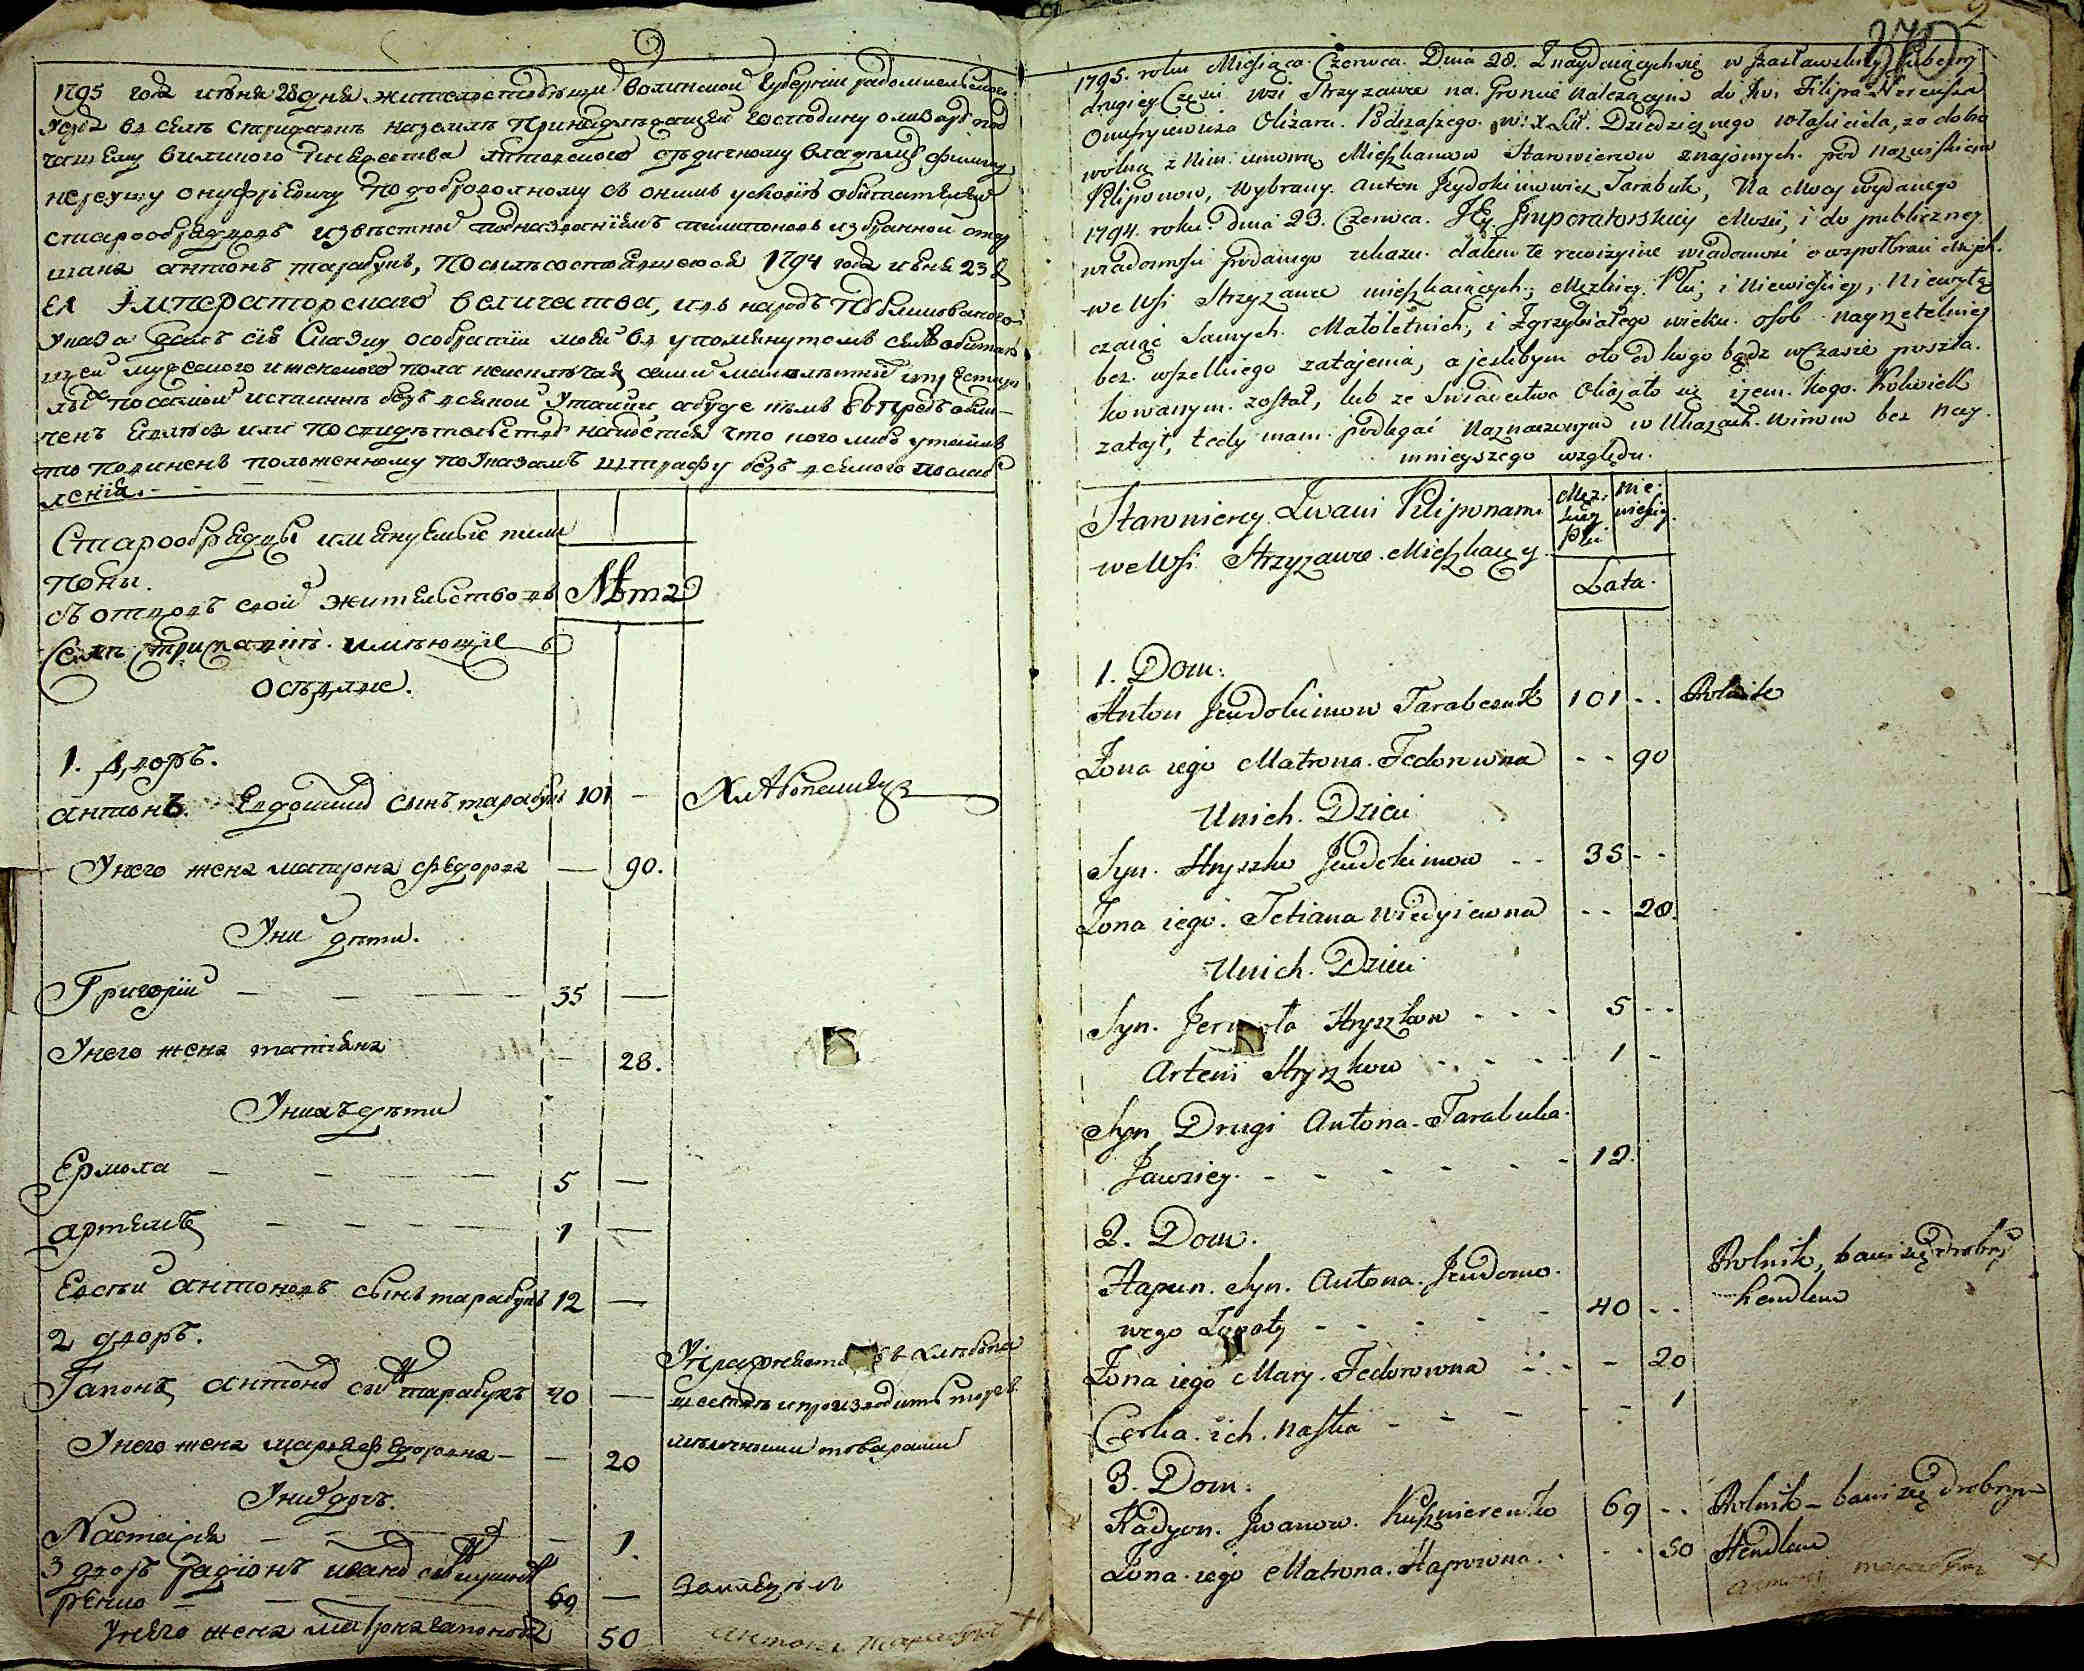 1795 года июня 28 дня жительствующи Волинской губерній радомисльского
уезда въ селе Стрижавке на земле принадлежащей господину Олизару под
чашему виликого князества литовского дедичному владелцу филипу
нереушу онуфріевичу по добровольному съ онимъ условію обитателей
старообрядцовъ известной под названіемъ пилипоновъ избранной ота
манъ антонъ тарабукъ, по силе состоявшегося 1794 года июня 23 д
Ея Імператорского величества, и въ народъ публикованого
указа далъ сію сказку о собратіи моей въ упомянутомъ селе обитаю
щей мужеского и женского пола не исключая самих малолетних и престаре
лых по самой истинне безъ всякой утайки, а буде кемъ впредь обли-
ченъ явлюсь или по свидетельству найдется что кого либо утаилъ
то повиненъ положенному по указамъ штрафу безъ всякого послаб
ленія.
Старообрядцы именуемые пили
поны.
съ отцовъ свой жительство въ
Селе Стрижавке имеющіе
оседлие.
Лета
1. Дворъ.
антонъ Евдокимов сынъ тарабукъ 101 — Хлебопашецъ
У него жена матрона федорова — 90.
У них дети.
Григорій — — — 35 —
У него жена татіяна — 28.
У нихъ дети
Ермола — — — 5 —
артемъ — — — 1 —
Евсей антоновъ сынъ тарабукъ 12 —
2 дворъ.
Гапонъ антонов сынъ тарабукъ 40 — Упражняется въ хлебопа
шестве и производитъ торгъ
У него жена марья федоровна — — 20 мелочными товарами
У них дочь.
Настасія — — — 1.
3 дворъ радіонъ иванов сынъ кушни
ренко — — — 69 —
У него жена матрона гапонова 50
антонъ тарабукъ +
2
1795. roku Miesiąca Czerwca Dnia 28. Znayduiących się w Jzasławskiey Guberny
drugiey Części wsi Strzyzawce na Gruncie Należącym do Jw. Filipa Nereusza
Onufryiewicza Olizara Podczaszego w. X. Lit. Dziedzicznego właściciela, za dobro
wolną z Nim umową Mieszkańcow Starowiercow znajomych pod nazwiskiem
Pilipónow, Wybrany Anton Jewdokimowicz Tarabuk, Na Mocy wydanego
1794. roku dnia 23. Czerwca JEy Imperatorskiey Mości, i do publiczney
wiadomości podanego ukazu dałem te rewizyine wiadomość o wspołbraci moich
we Wsi Strzyzawce mieszkaiących, Męzkiey Płci i Niewieściey, Niewyłą
czaiąc Samych Małoletnich, i Zgrzybiałego wieku osob nayrzetelniey
bez wszelkiego zataienia, a jeslibym oto od kogo bądz w Czasie poszla
kowanym został, lub ze swiadectwa Okazało się iżem kogo kolwiek
zataił, tedy mam podlegać Naznaczonym w Ukazach Winom bez nay
mnieyszego względu.
Starowiercy Zwani Pilipnami
we Wsi Strzyzawce Mieszkaiący
Męz:
kiey
Płci
Nie:
wieściey
Lata.
1. Dom.
Anton Jewdokimow Tarabczuk 101 - - Rolnik
Zona iego Matrona Fedorowna - - 90
U nich Dzieci
Syn Hryszko Jewdokimow - - 35 - -
Zona iego Tetiana - - 28.
U nich Dzieci
Syn Jermoła Hryszkow - - - 5 - -
Artem Hryszkow - - - - 1 -
Syn Drugi Antona Tarabuka
Jawsiey - - - - - - 12.
2. Dom.
Hapun Syn Antona Jewdomo
wego - - - - 40 - - Rolnik, bawi się drobny
handlem
Zona iego Mary Fedorowna - - - 20
Corka ich Nastia - - - - - 1
3. Dom.
Radyon Jwanow Kusznierenko 69 - - Rolnik - bawi się drobnym
Handlem
Zona iego Matrona Haponowna - - - 50
антонъ тарабукъ +